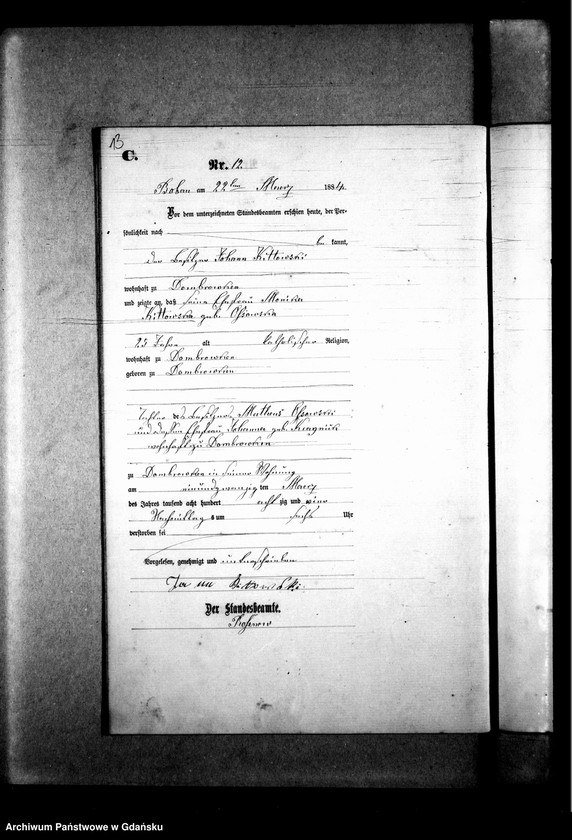 13
C.
Nr. 12.
Bobau am 22ten März 1884.
Vor dem unterzeichneten Standesbeamten erschien heute, der Per-
sönlichkeit nach
be kannt,
der Besitzer Johann Kittowski
wohnhaft zu Dombrowken
und zeigte an, daß seine Ehefrau Monika
Kittowska geb. Ossowska
25 Jahre alt katholischer Religion,
wohnhaft zu Dombrowken
geboren zu Dombrowken
Tochter des Besitzers Mathaus Ossowski
und dessen Ehefrau Johanna geb.
wohnhaft zu Dombrowken
zu Dombrowken in seiner Wohnung
am einundzwanzigten März
des Jahres tausend acht hundert acht zig und vier
Nachmittags um sechs Uhr
verstorben sei
Vorgelesen, genehmigt und unterschrieben
Jan
Der Standesbeamte.
Archiwum Państwowe w Gdańsku